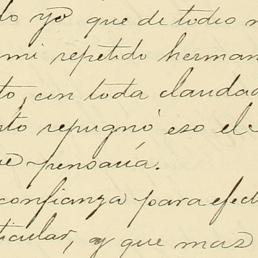 do yo que de todio n
mi repetido herman
to, con toda claudad
sto repugnó eso ele
ue pensaua.
confianza para efect
ticular, y que mas